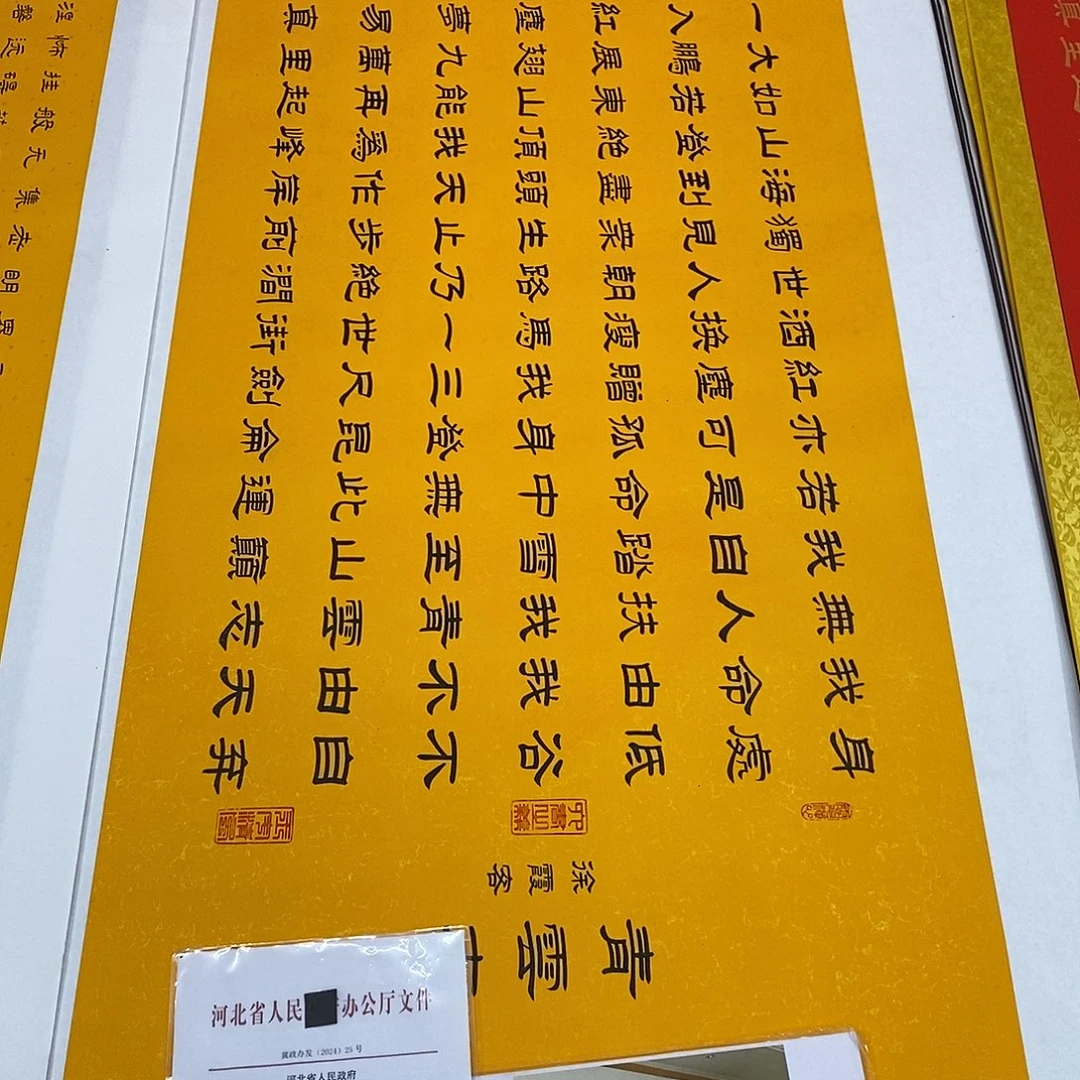 青雲
徐霞客
身處低谷不自弃
我命由我不由天
無人扶我青雲志
我自踏雪至山巔
若是命中無此運
亦可孤身登昆侖
紅塵贈我三尺劍
酒換瘦馬一世街
世人朝路乃絕澗
獨見眾生止步前
海到盡頭天作岸
山登絕頂我為峰
如若東山能再起
大鵬展翅九萬里
一入紅塵夢易真
河北省人民 办公厅文件
冀政办发〔2024〕25号
河北省人民政府